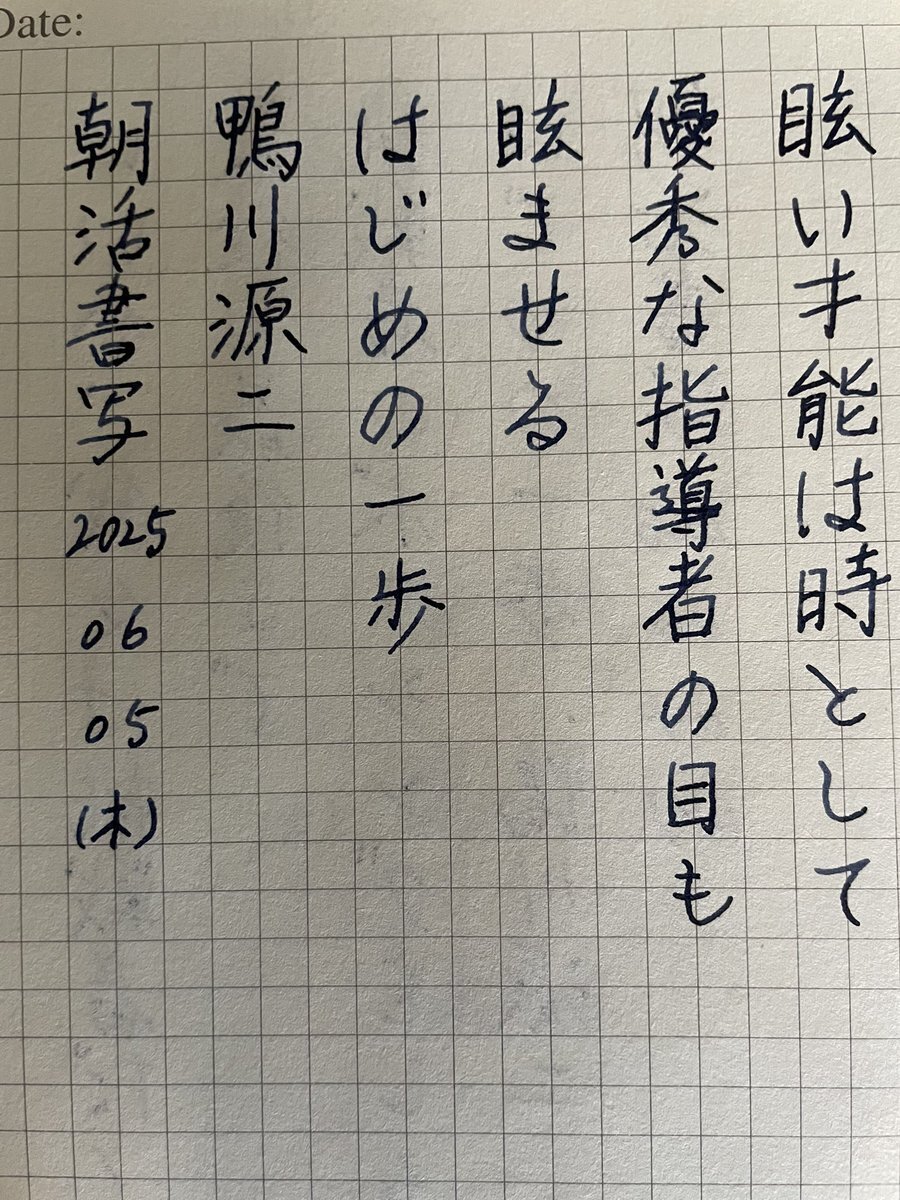 Date:
眩い才能は時として
優秀な指導者の目も
眩ませる
はじめの一歩
鴨川源二
朝活書写 2025 06 05 (木)